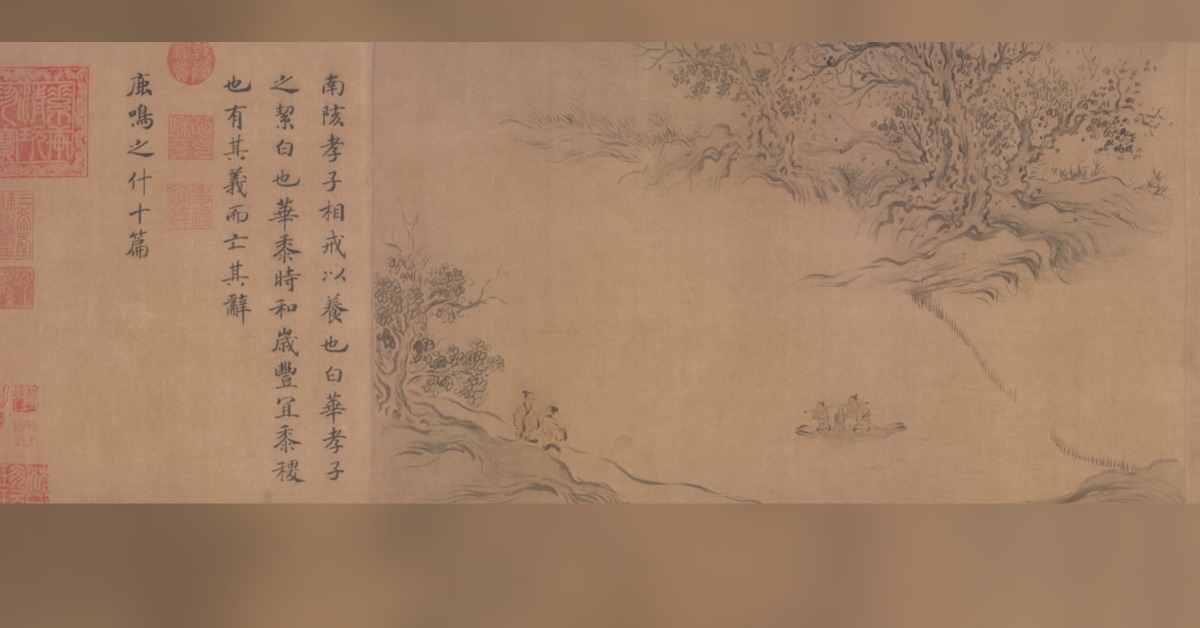 南陔孝子相戒以養也白華孝子
之絜白也華黍時和歲豐冝黍稷
也有其義而亡其辭
鹿鳴之什十篇